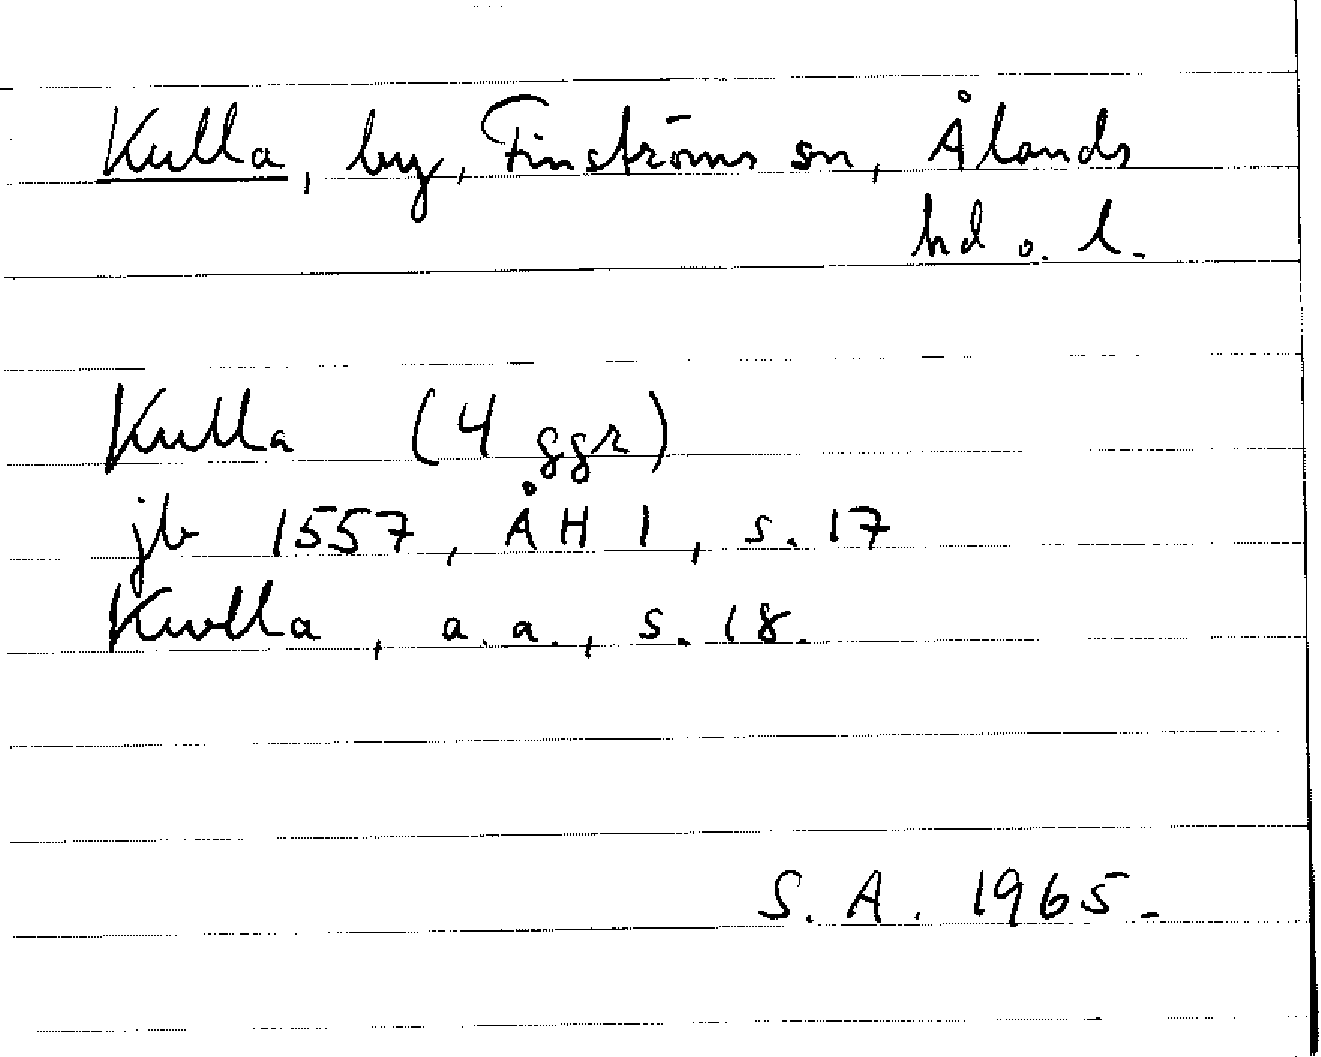 Kulla, by, Finströms sn, Ålands
hd o. l.
Kulla (4 ggr)
jb 1557, ÅH 1, s. 17
Kwlla, a.a., s. 18.
S. A. 1965.